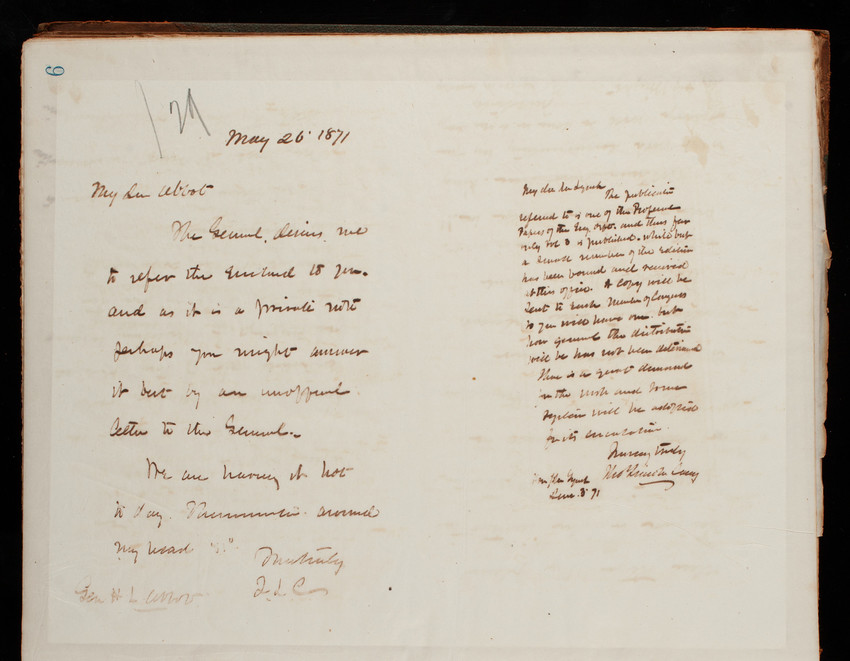 6
129
May 26 1871
My dear Abbot
The General desires me
to refer the enclosed to you.
and as it is a private note
perhaps you might answer
it best by an unofficial
letter to the General.
We are having it hot
to day. Thermometer around
my head
Yours truly
T. L. C
Gen H L Abbot
My dear Mr Lynch The publication
referred to is one of the Profess
Papers of the Eng Corps. and thus far
only Vol 3 is published. while but
a small number of the edition
has been bound and received
at this office. A copy will be
sent to each Member of Congress
so you will have one. but
how general the distribution
will be has not been determined
There is a great demand
for the work and some
system will be adopted
for its circulation.
Yours very truly
Thos Lincoln Casey
Hon Jno Lynch
June 3 71